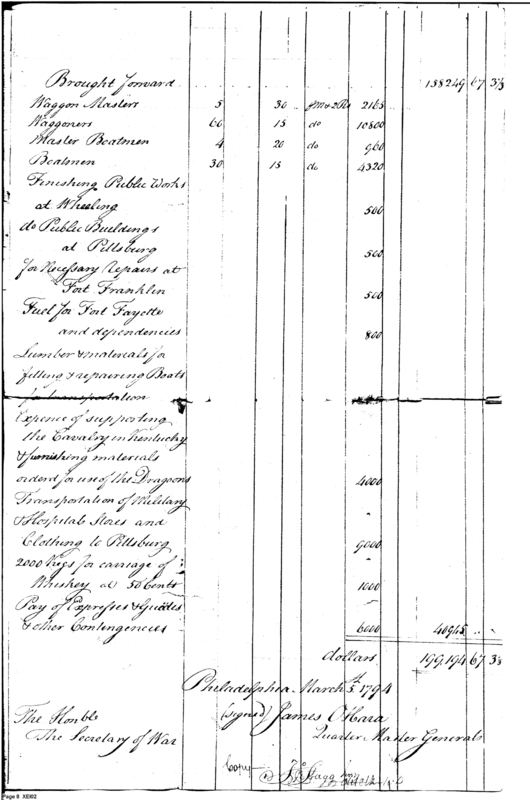 Brought forward 158249 67 3/3
Waggon Masters 5 30 2165
Waggoners 60 15 do 10800
Master Boatmen 4 20 do 960
Boatmen 30 15 do 4320
Finishing Public Works
at Wheeling 500
do Public Buildings
at Pittsburg 500
for Necessary Repairs at
Fort Franklin 500
Fuel for Fort Fayette
and dependencies 800
Lumber & materials for
fitting & repairing Boats
for transportation
Expence of supporting
the Cavalry in Kentucky
& furnishing materials
orderd for use of the Dragoons 4000
Transportation of Military
& Hospital Stores and
Clothing to Pittsburg 9000
2000 Kegs for carriage of
Whiskey at 50 Cents 1000
Pay of Expresses & Guides
& other Contingencies 6000 40945 ..
dollars 199,194 67
Philadelphia March 5th 1794
The Honble (signed) James O'Hara
The Secretary of War Quarter Master General
Copy Jno Stagg
Page 8 XEI02